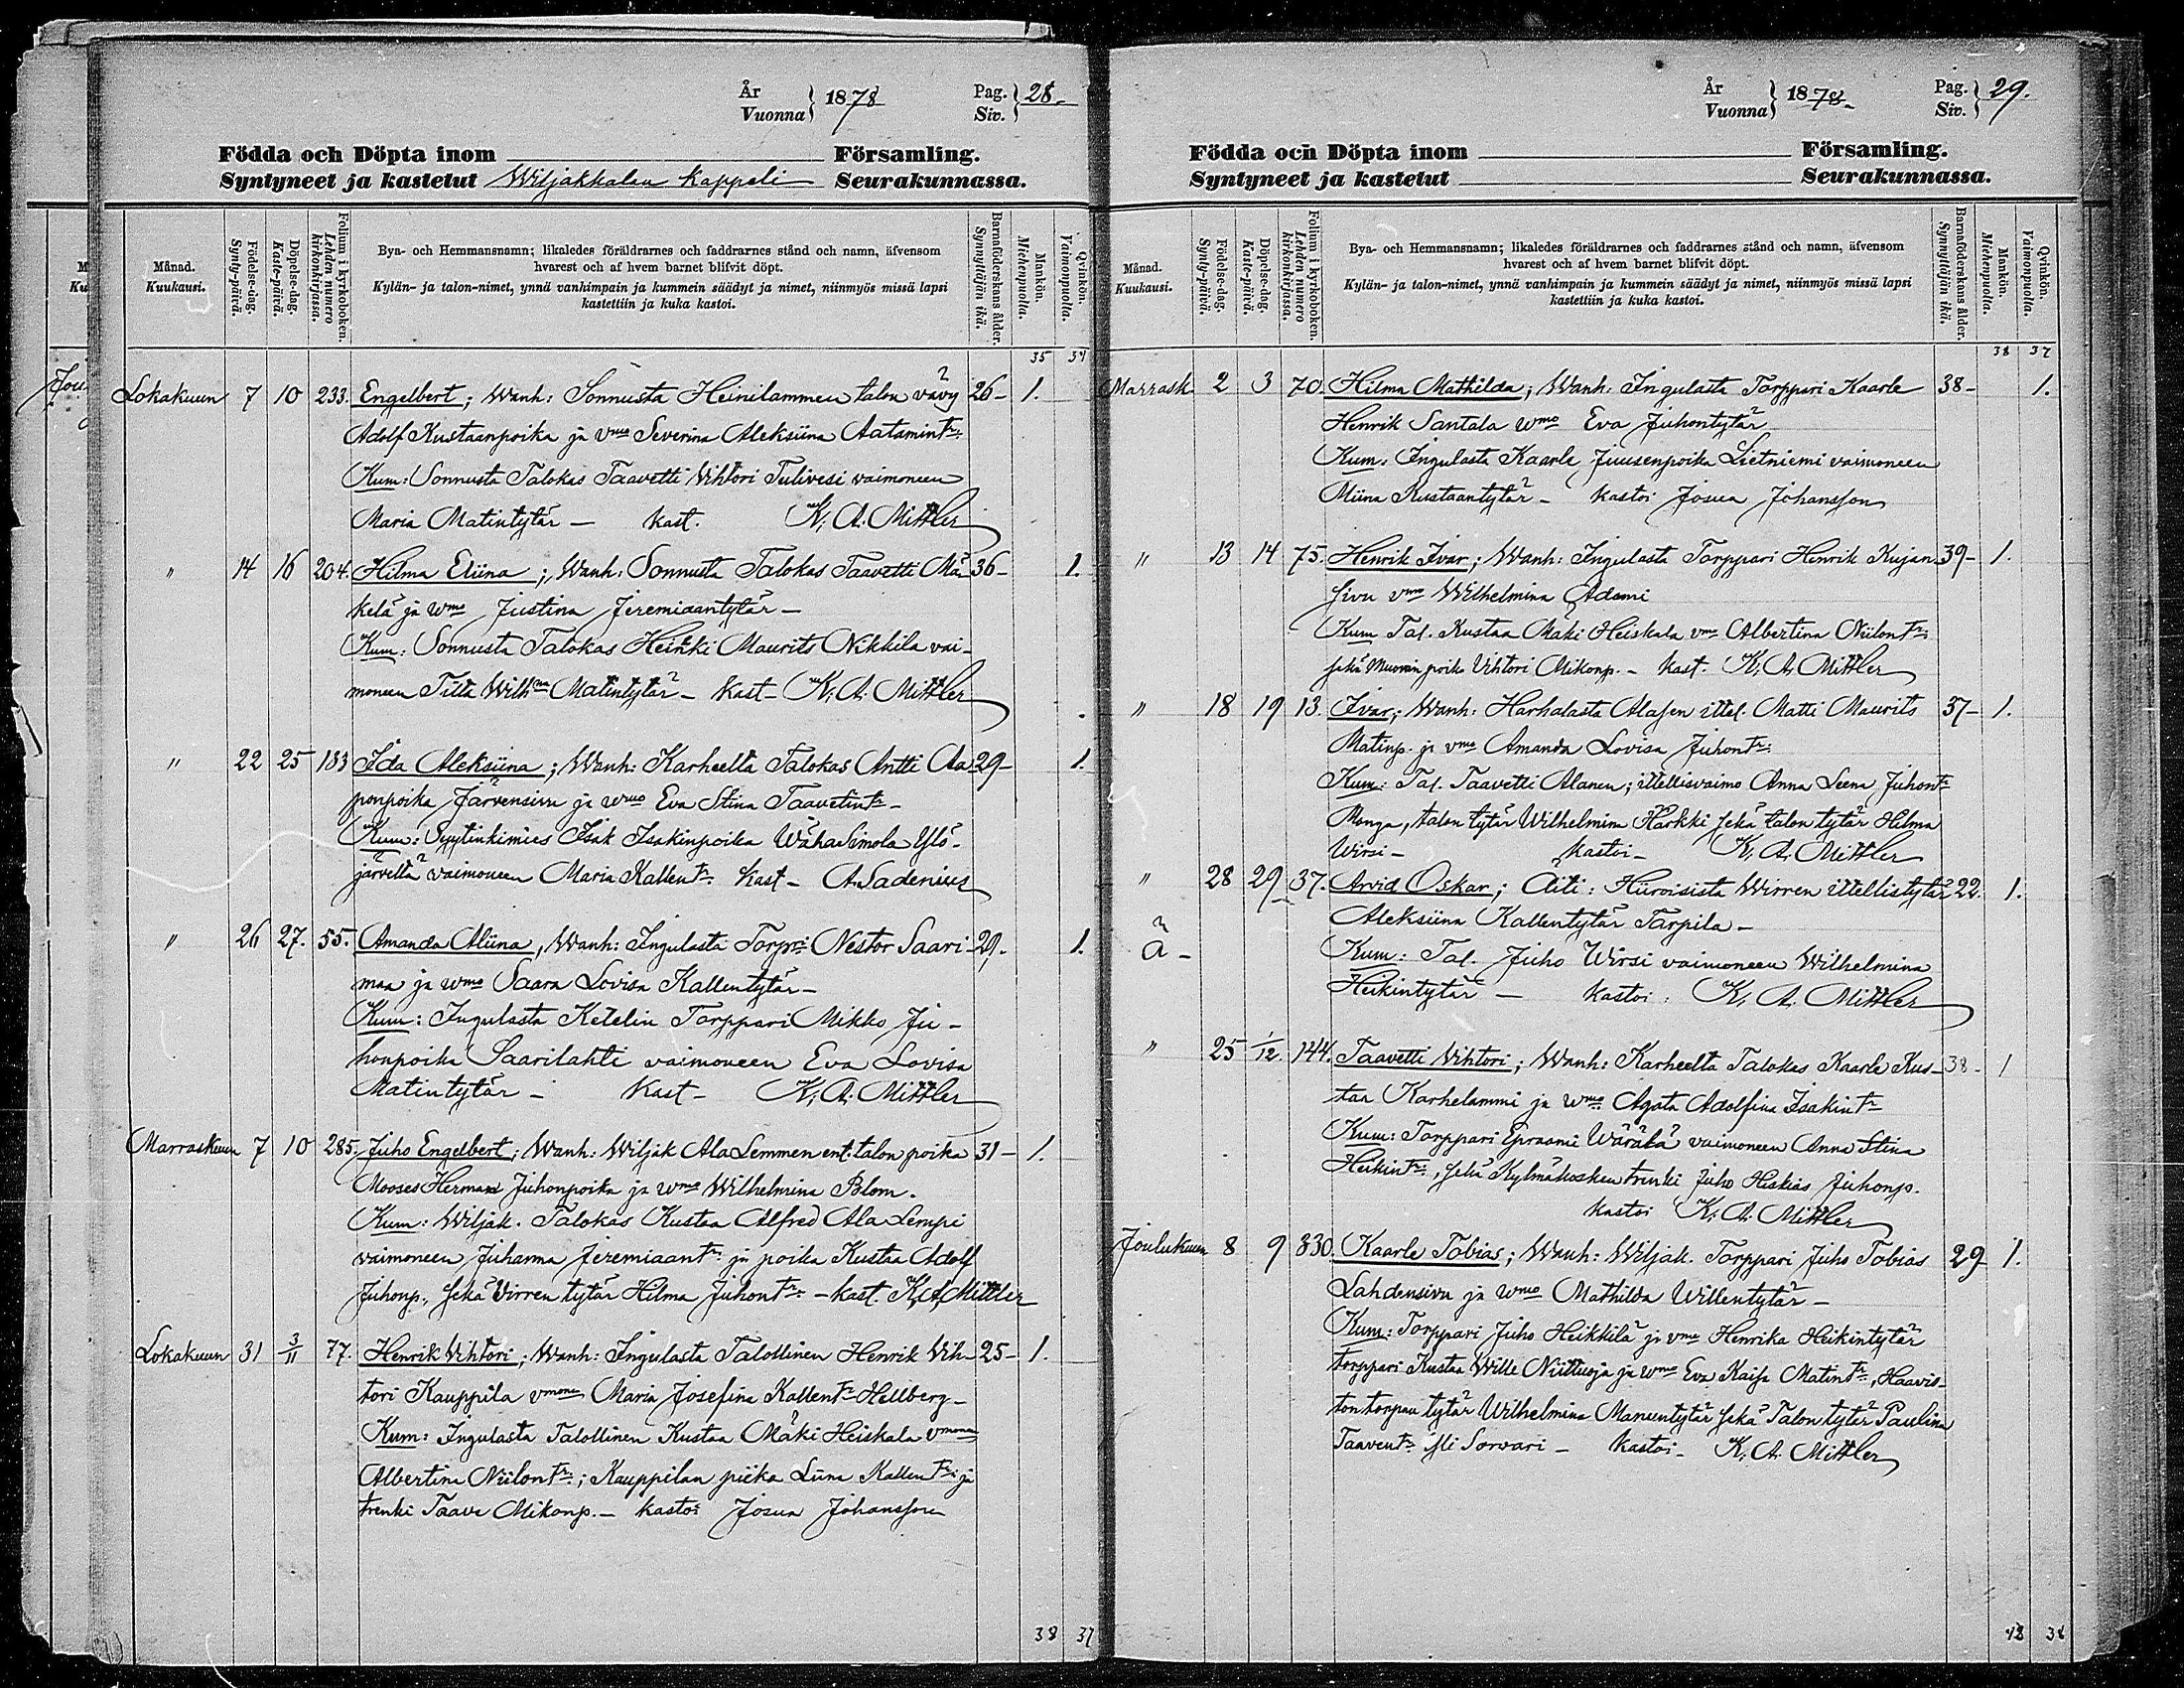 År Vuonna } 1878 Pag. Siv. } 28.
Födda och Döpta inom Församling.
Syntyneet ja kastetut Wiljakkalan Kappeli Seurakunnassa.
Månad. Kuukausi.
Födelse-dag. Synty-päivä.
Döpelse-dag. Kaste-päivä.
Folium i kyrkoboken. Lehden numero kirkonkirjassa.
Bya- och Hemmansnamn; likaledes föräldrarnes och faddrarnes stånd och namn, äfvensom
hvarest och af hvem barnet blifvit döpt.
Kylän- ja talon-nimet, ynnä vanhimpain ja kummein säädyt ja nimet, niinmyös missä lapsi
kastettiin ja kuka kastoi.
Barnaföderskans ålder. Synnyttäjän ikä.
Mankön. Miehenpuolia.
Qvinkön. Vaimonpuolia.
35 34
Lokakuun 7 10 233. Engelbert; Wanh: Sonnusta Heinilammen talon vävy 26- 1.
Adolf Kustaanpoika ja vmo Severina Aleksiina Aatamintr:
Kum: Sonnusta Talokas Taavetti Vihtori Tulivesi vaimoneen
Maria Matintytär — Kast. K. A. Mittler
" 14 16 204. Hilma Eliina; Wanh: Sonnusta Talokas Taavetti Mä- 36- 1.
kelä ja Wmo Justina Jeremiaantytär —
Kum: Sonnusta Talokas Heikki Maurits Nikkilä vai-
moneen Tilta Matintytär — Kast — K. A. Mittler
" 22 25 183 Ida Aleksiina; Wanh: Karheelta Talokas Antti Aa- 29- 1.
ponpoika Järvensivu ja wmo Eva Stina Taavetintr —
Kum: Syytinkimies Isak Isakinpoika WähäSimola Ylö-
järveltä vaimoneen Maria Kallentr: Kast — A. Sadenius
" 26 27. 55. Amanda Aliina, Wanh: Ingulasta Torpri: Nestor Saari- 29. 1.
maa ja wmo Saara Lovisa Kallentytär —
Kum: Ingulasta Ketelin Torppari Mikko Ju-
honpoika Saarilahti vaimoneen Eva Lovisa
Matintytär — Kast — K. A. Mittler
Marraskuun 7 10 285. Juho Engelbert; Wanh: Wiljak AlaLemmen ent. talon poika 31- 1.
Mooses Herman Juhonpoika ja wmo Wilhelmina Blom.
Kum: Wiljak. Talokas Kustaa Alfred Ala Lempi
vaimoneen Juhanna Jeremiaantr: ja poika Kustaa Adolf
Juhonp., sekä Virren tytär Hilma Juhontr: — Kast. K. A. Mittler
Lokakuun 31 3/11 77. Henrik Vihtori; Wanh: Ingulasta Talollinen Henrik Vih- 25- 1.
tori Kauppila vmonn Maria Josefina Kallentr Hellberg —
Kum: Ingulasta Talollinen Kustaa Mäki Heiskala
Albertina Niilontr:; Kauppilan piika Liina Kallentr: ja
trenki Taave Mikonp. — kastoi Josua Johansson
38 37
År Vuonna } 1878. Pag. Siv. } 29.
Födda och Döpta inom Församling.
Syntyneet ja kastetut Seurakunnassa.
Månad. Kuukausi.
Födelse-dag. Synty-päivä.
Döpelse-dag. Kaste-päivä.
Folium i kyrkoboken. Lehden numero kirkonkirjassa.
Bya- och Hemmansnamn; likaledes föräldrarnes och faddrarnes stånd och namn, äfvensom
hvarest och af hvem barnet blifvit döpt.
Kylän- ja talon-nimet, ynnä vanhimpain ja kummein säädyt ja nimet, niinmyös missä lapsi
kastettiin ja kuka kastoi.
Barnaföderskans ålder. Synnyttäjän ikä.
Mankön. Miehenpuolia.
Qvinkön. Vaimonpuolia.
38 37
Marrask 2 3 70. Hilma Mathilda; Wanh: Ingulasta Torppari Kaarle 38- 1.
Henrik Santala wmo Eva Juhontytär
Kum: Ingulasta Kaarle Juusenpoika Lietniemi vaimoneen
Miina Kustaantytär — kastoi Josua Johansson
" 13 14 75. Henrik Ivar; Wanh: Ingulasta Torppari Henrik Kujan- 39- 1.
sivu vmo Wilhelmina Adami
Kum Tal. Kustaa Mäki Heiskala vmo Albertina Niilontr:
sekä Muorin poika Vihtori Mikonp. — Kast. K. A. Mittler
" 18 19 13. Ivar; Wanh: Harhalasta Alasen ittel. Matti Maurits 37- 1.
Matinp. ja vmo Amanda Lovisa Juhontr:
Kum: Tal. Taavetti Alanen; ittellisvaimo Anna Leena Juhontr
Monga, talon tytär Wilhelmina Harkki sekä talon tytär Hilma
Wirsi — kastoi — K. A. Mittler
" 28 29 37. Arvid Oskar; Äiti: Hiiroisista Wirren ittellistytär 22. 1.
Aleksiina Kallentytär Tarpila —
ä - Kum: Tal. Juho Wirsi vaimoneen Wilhelmina
Heikintytär — kastoi: K. A. Mittler
" 25 1/12. 144. Taavetti Vihtori; Wanh: Karheelta Talokas Kaarle Kus- 38- 1
taa Karhelammi ja Wmo Agata Adolfina Isakintr
Kum: Torppari Epraami Wäräkä vaimoneen Anna Stina
Heikintr:, sekä Kylmäkosken trenki Juho Hiskias Juhonp.
kastoi K. A. Mittler
Joulukuun 8 9 330. Kaarle Tobias; Wanh: Wiljak. Torppari Juho Tobias 29- 1.
Lahdensivu ja wmo Mathilda Willentytär —
Kum: Torppari Juho Heikkilä ja vmo Henrika Heikintytär
torppari Kustaa Wille Niittuoja ja wmo Eva Kaisa Matintr:, Haavis-
ton torpan tytär Wilhelmina Manuntytär sekä Talon tytär Paulina
Taaventr: Yli Sorvari — kastoi — K. A. Mittler
42 38